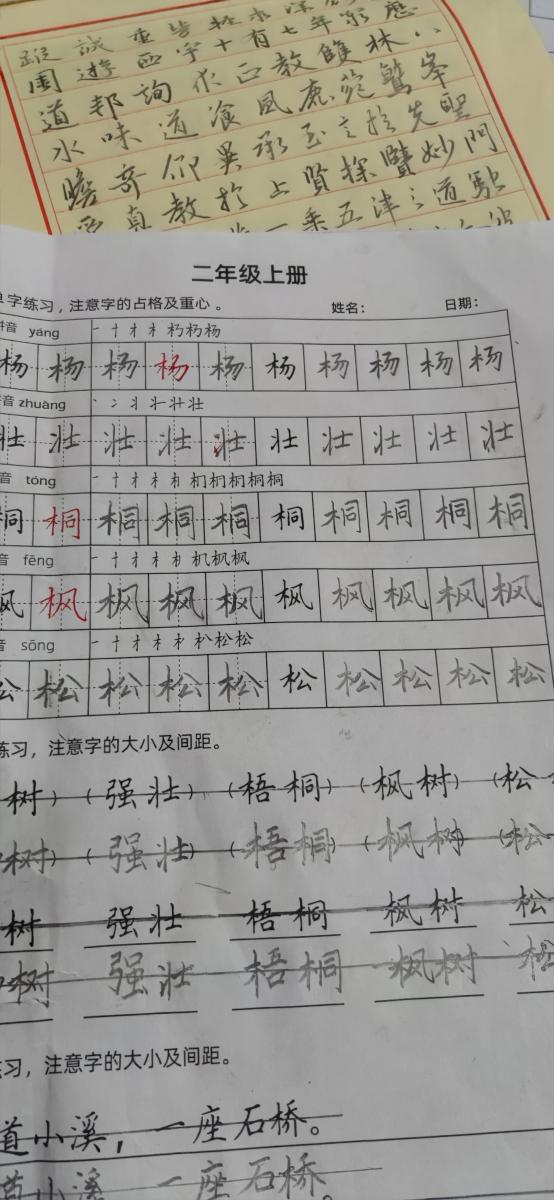 遊西宇十有七年窮歷
道邦詢求正教雙林八
水味道湌風鹿菀鷲峯
瞻奇仰異承至言於先聖
受真教於上賢探賾妙門
一乘五津之道馳
二年级上册
单字练习，注意字的占格及重心。 姓名： 日期：
拼音 yáng 一 十 才 木 杩 杨 杨
杨 杨 杨 杨 杨 杨 杨 杨 杨 杨
音 zhuàng 丶 冫 丬 壮 壮 壮
壮 壮 壮 壮 壮 壮 壮 壮 壮 壮
音 tóng 一 十 才 木 札 机 桐 桐 桐 桐
桐 桐 桐 桐 桐 桐 桐 桐 桐 桐
音 fēng 一 十 才 木 朷 机 枫 枫
枫 枫 枫 枫 枫 枫 枫 枫 枫 枫
音 sōng 一 十 才 木 朳 松 松
松 松 松 松 松 松 松 松 松 松
练习，注意字的大小及间距。
树）（强壮）（梧桐）（枫树）（松
树）（强壮）（梧桐）（枫树）（松
树 强壮 梧桐 枫树 松
树 强壮 梧桐 枫树 松
练习，注意字的大小及间距。
道小溪，一座石桥。
道小溪，一座石桥。